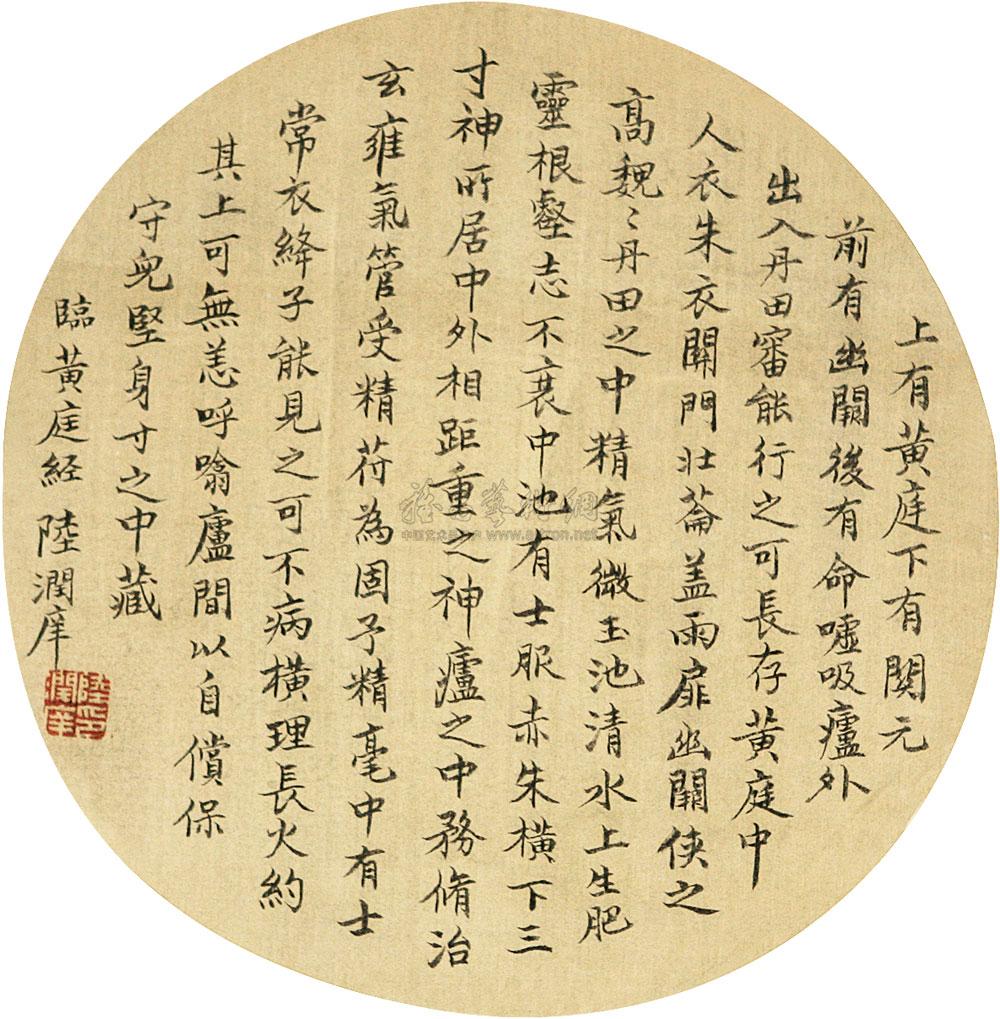 上有黃庭下有関元
前有幽闕後有命噓吸廬外
出入丹田審能行之可長存黃庭中
人衣朱衣関門壮蘥盖兩扉幽闕俠之
高魏〻丹田之中精氣微玉池清水上生肥
靈根堅志不衰中池有士服赤朱橫下三
寸神所居中外相距重之神廬之中務脩治
玄雍氣管受精苻為固子精毫中有士
常衣絳子能見之可不病橫理長尺約
其上可無恙呼噏廬間以自償保
守兒堅身寸之中藏
臨黃庭経 陸潤庠